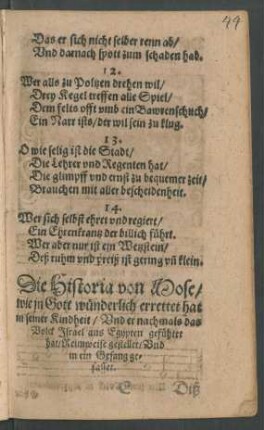 49
Das er sich nicht selber renn ab/
Vnd darnach spott zum schaden hab.
12.
Wer alls zu Poltzen drehen wil/
Drey Kegel treffen alle Spiel/
Dem felts offt vmb ein Bawrenschuch/
Ein Narr ists/ der wil sein zu klug.
13.
O wie selig ist die Stadt/
Die Lehrer vnd Regenten hat/
Die glimpff vnd ernst zu bequemer zeit/
Brauchen mit aller bescheidenheit.
14.
Wer sich selbst ehret vnd regiert/
Ein Ehrenkrantz der billich führt.
Wer aber nur ist ein Wetzstein/
Deß ruhm vnd preiß ist gering vñ klein.
Die Historia von Mose/
wie jn Gott wünderlich errettet hat
in seiner Kindheit/ Vnd er nachmals das
Volck Jsrael aus Egypten geführet
hat/ Reimweise gestellet/ Vnd
in ein Gesang ge-
fasset.
Diß